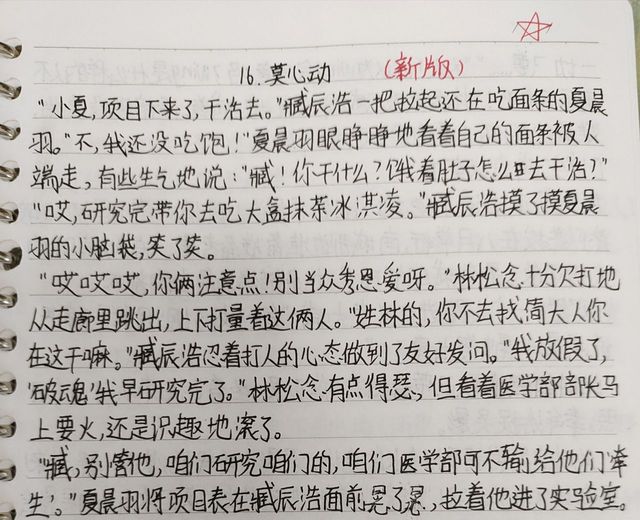 16. 莫心动 (新版)
"小夏,项目下来了,干活去。"臧辰浩一把拉起还在吃面条的夏晨
羽。"不,我还没吃饱!"夏晨羽眼睁睁地看着自己的面条被人
端走,有些生气地说:"臧!你干什么?饿着肚子怎么去干活?"
"哎,研究完带你去吃大盒抹茶冰淇凌。"臧辰浩摸了摸夏晨
羽的小脑袋,笑了笑。
"哎哎哎,你俩注意点!别当众秀恩爱呀。"林松念十分欠打地
从走廊里跳出,上下打量着这俩人。"姓林的,你不去找简大人你
在这干嘛。"臧辰浩忍着打人的心态做到了友好发问。"我放假了,
'破魂'我早研究完了。"林松念有点得瑟,但看着医学部部长马
上要火,还是识趣地滚了。
"臧,别管他,咱们研究咱们的,咱们医学部可不输给他们'牵
生'。"夏晨羽将项目表在臧辰浩面前晃了晃,拉着他进了实验室。